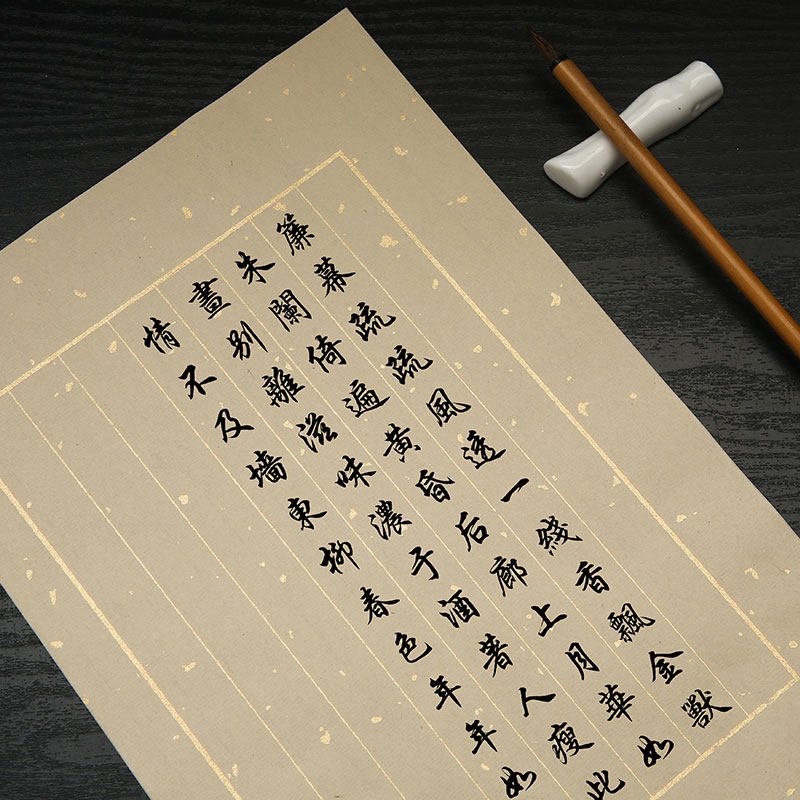 簾幕疏疏風透一綫香飄金獸
朱闌倚遍黄昏后廊上月華如
畫別離滋味濃于酒著人瘦此
情不及墙東柳春色年年如